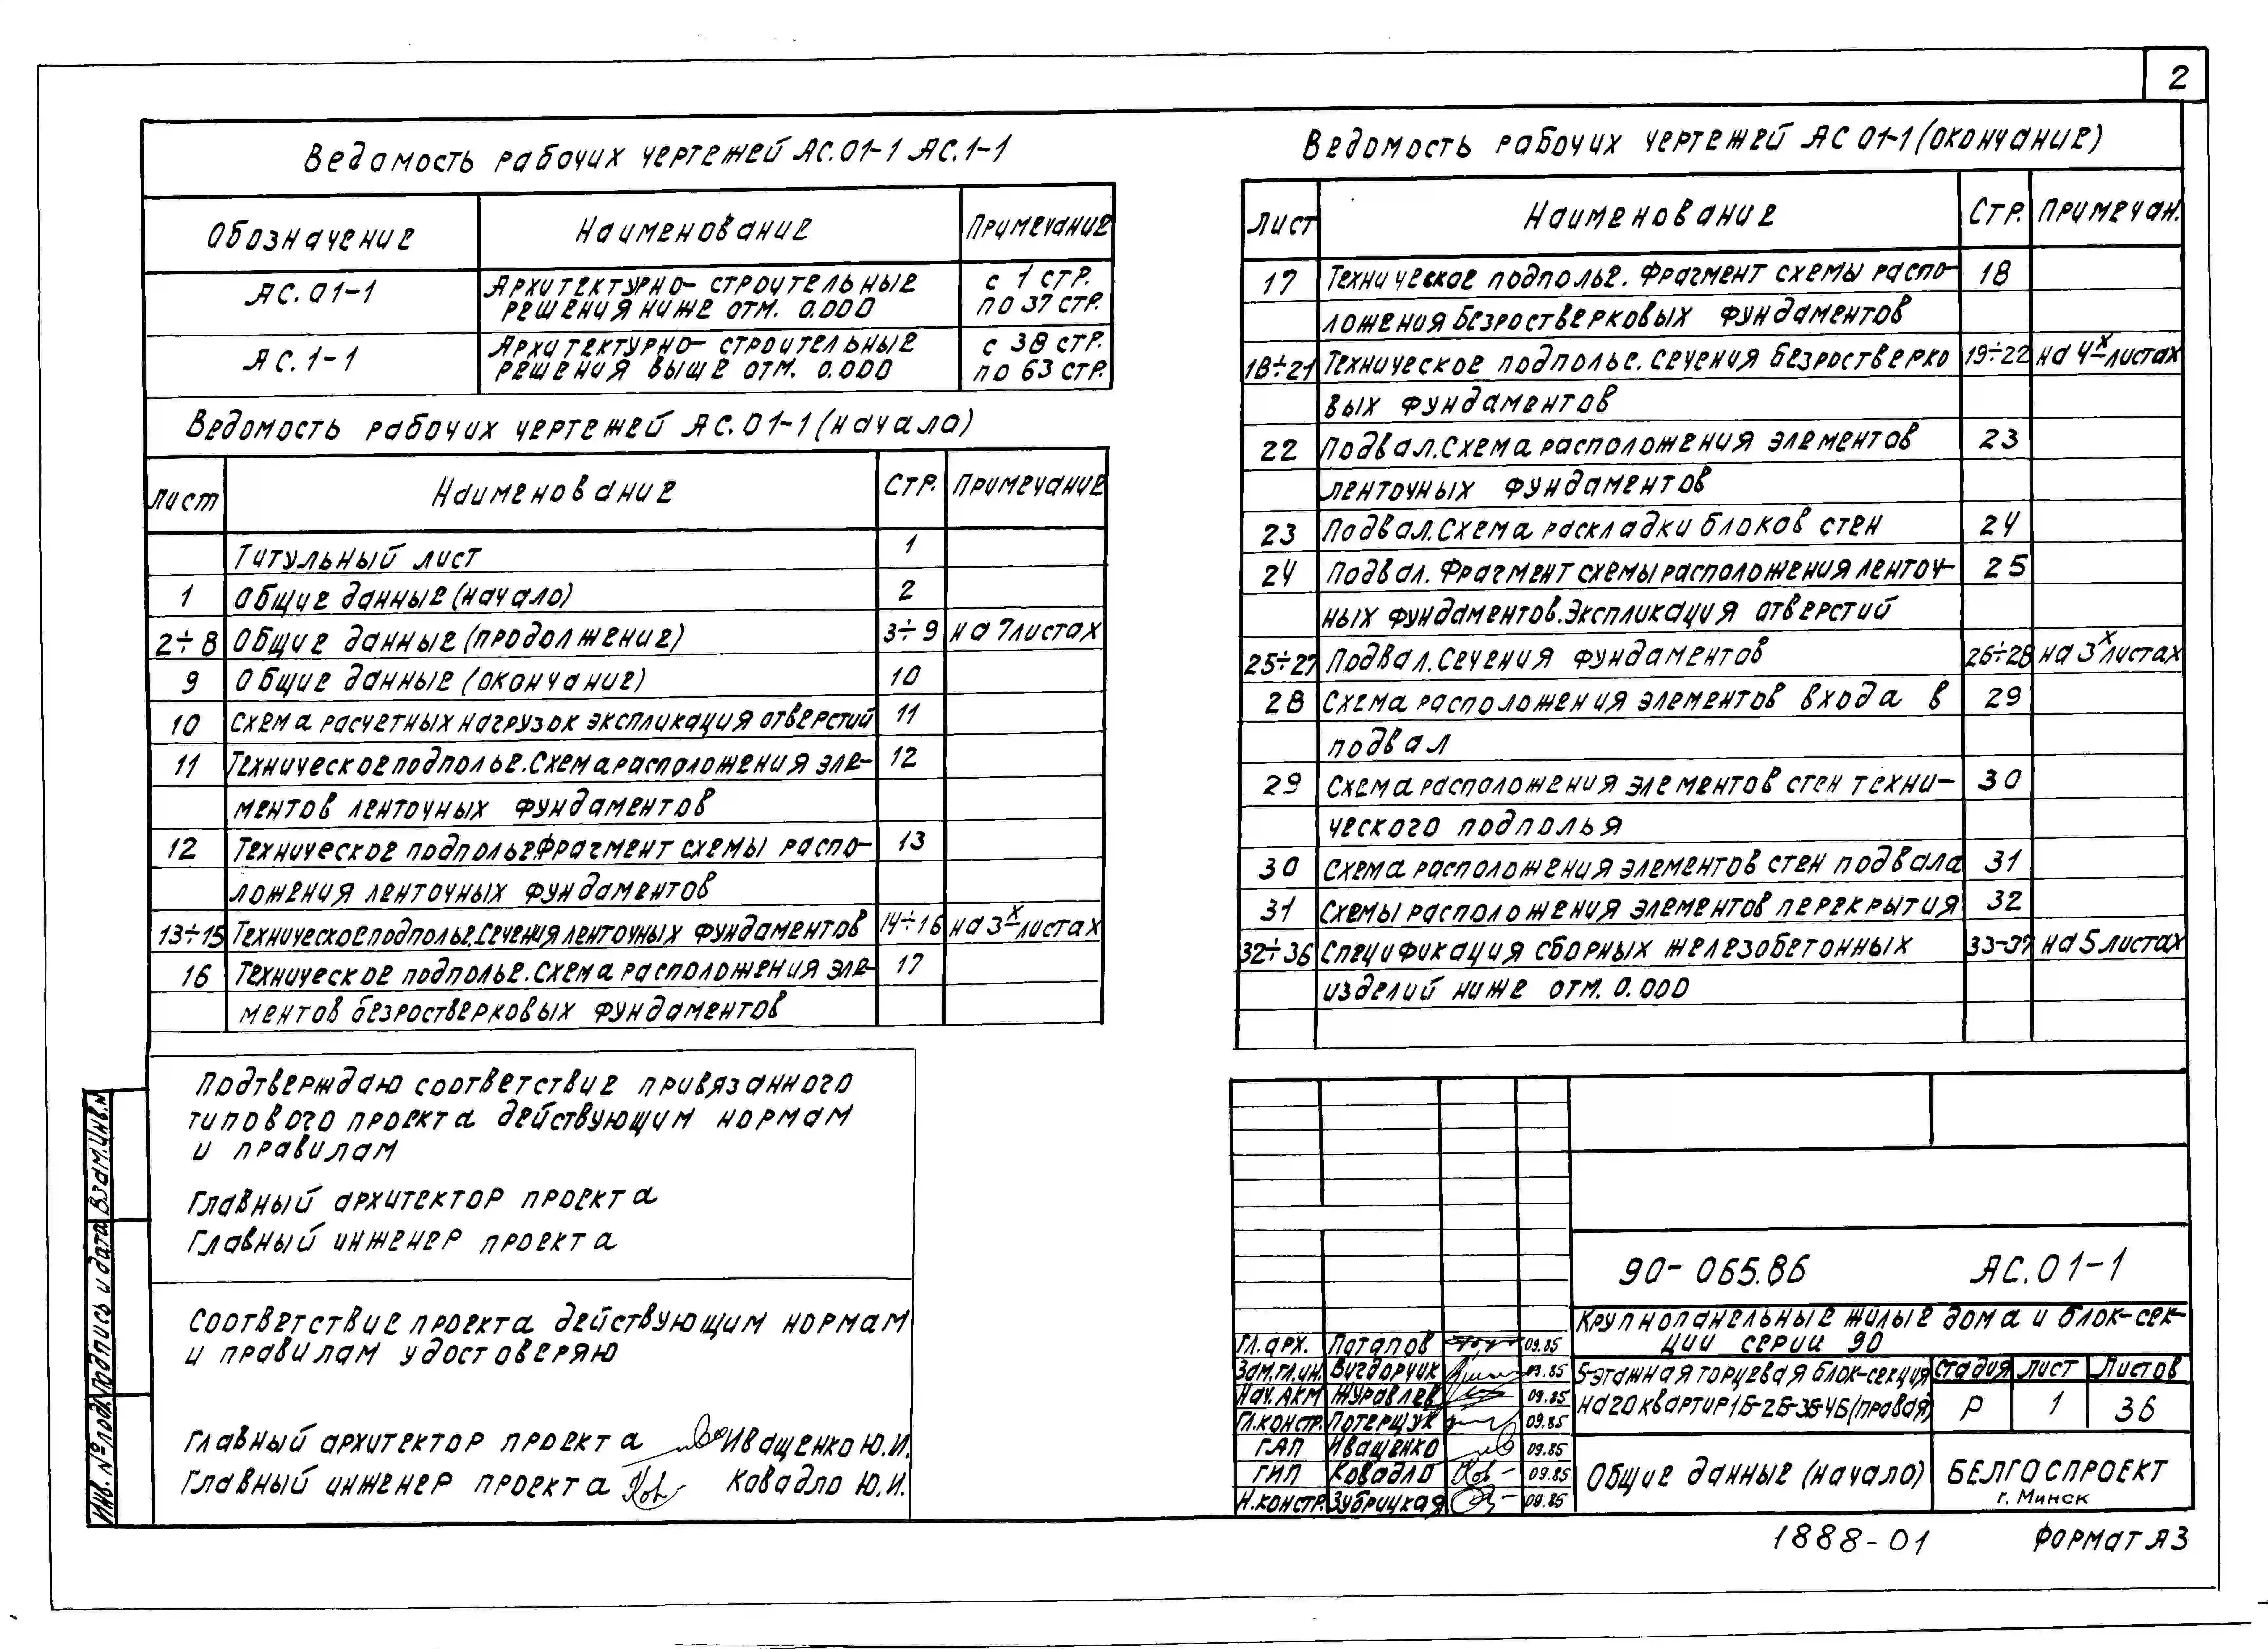 2
Ведомость рабочих чертежей АС.01-1 АС.1-1
Обозначение Наименование Примечание
АС.01-1 Архитектурно-строительные решения ниже отм. 0.000 с 1 стр. по 37 стр.
АС.1-1 Архитектурно-строительные решения выше отм. 0.000 с 38 стр. по 63 стр.
Ведомость рабочих чертежей АС.01-1 (начало)
Лист Наименование Стр. Примечание
Титульный лист 1
1 Общие данные (начало) 2
2÷8 Общие данные (продолжение) 3÷9 на 7листах
9 Общие данные (окончание) 10
10 Схема расчетных нагрузок экспликация отверстий 11
11 Техническое подполье. Схема расположения эле- 12
ментов ленточных фундаментов
12 Техническое подполье.Фрагмент схемы распо- 13
ложения ленточных фундаментов
13÷15 Техническое подполье.Сечения ленточных фундаментов 14÷16 на 3х листах
16 Техническое подполье. Схема расположения эле- 17
ментов безростверковых фундаментов
Подтверждаю соответствие привязанного
типового проекта действующим нормам
и правилам
Главный архитектор проекта
Главный инженер проекта
Соответствие проекта действующим нормам
и правилам удостоверяю
Главный архитектор проекта Иващенко Ю.И.
Главный инженер проекта Ковадло Ю.И.
Взам.инв.№
Подпись и дата
Инв. № подл.
Ведомость рабочих чертежей АС 01-1 (окончание)
Лист Наименование Стр. Примечан.
17 Техническое подполье. Фрагмент схемы распо- 18
ложения безростверковых фундаментов
18÷21 Техническое подполье. Сечения безростверко 19÷22 на 4х листах
вых фундаментов
22 Подвал.Схема расположения элементов 23
ленточных фундаментов
23 Подвал.Схема раскладки блоков стен 24
24 Подвал. Фрагмент схемы расположения ленточ- 25
ных фундаментов.Экспликация отверстий
25÷27 Подвал.Сечения фундаментов 26÷28 на 3х листах
28 Схема расположения элементов входа в 29
подвал
29 Схема расположения элементов стен техни- 30
ческого подполья
30 Схема расположения элементов стен подвала 31
31 Схемы расположения элементов перекрытия 32
32÷36 Спецификация сборных железобетонных 33-37 на 5 листах
изделий ниже отм. 0.000
90-065.86 АС.01-1
Крупнопанельные жилые дома и блок-сек-
ции серии 90
Гл.арх. Потапов 09.85
Зам.гл.ин. Вигдорчик 09.85
Нач.АКМ Журавлев 09.85
Гл.констр. Потерщук 09.85
ГАП Иващенко 09.85
ГИП Ковадло 09.85
Н.констр. Зубрицкая 09.85
5-этажная торцевая блок-секция
на 20 квартир 1Б-2Б-3Б-4Б (правая)
Стадия Лист Листов
Р 1 36
Общие данные (начало)
БЕЛГОСПРОЕКТ
г. Минск
1888-01 Формат А3